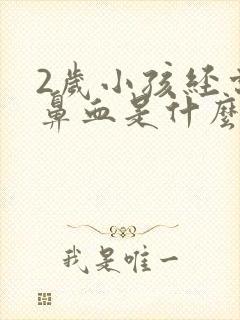 2歲小孩經
鼻血是什麼
我是唯一